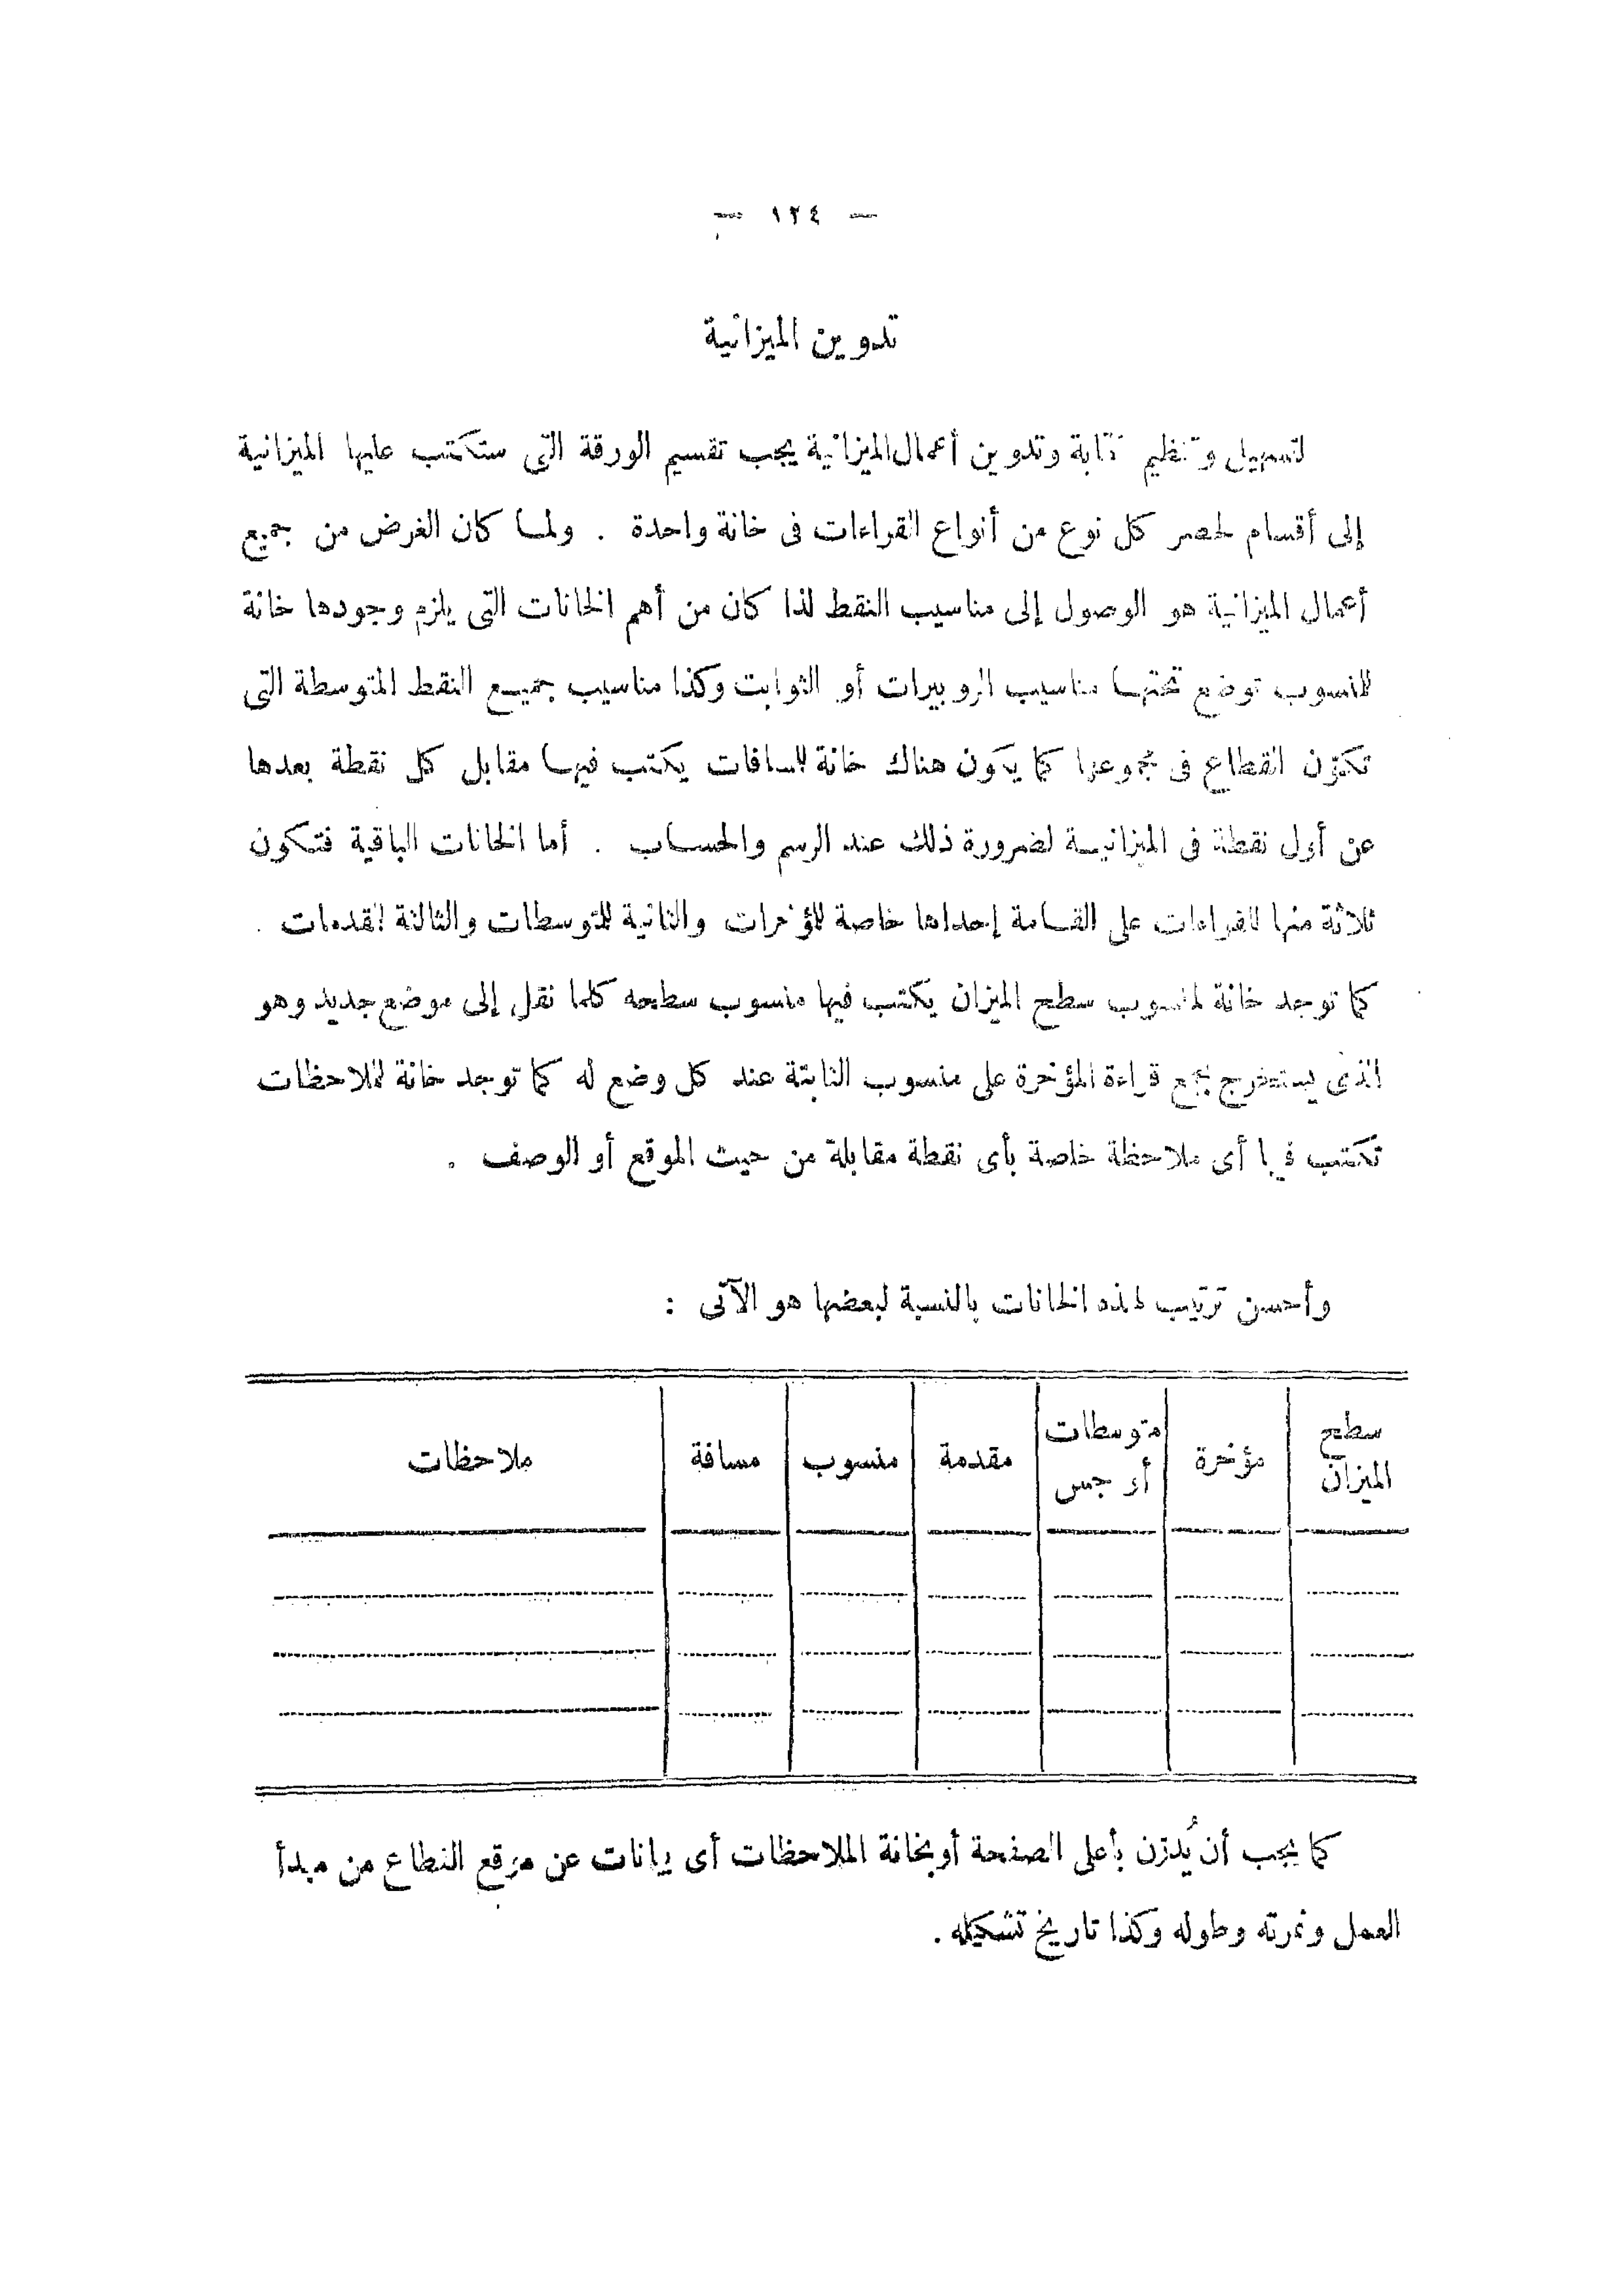 — ١٢٤ —
تدوين الميزانية
لتسهيل وتنظيم كتابة وتدوين أعمال الميزانية يجب تقسيم الورقة التى ستكتب عليها الميزانية
إلى أقسام لحصر كل نوع من أنواع القراءات فى خانة واحدة . ولما كان الغرض من جميع
أعمال الميزانية هو الوصول إلى مناسيب النقط لذا كان من أهم الخانات التى يلزم وجودها خانة
للمنسوب توضع تحتها مناسيب الروبيرات أو الثوابت وكذا مناسيب جميع النقط المتوسطة التى
تكوّن القطاع فى مجموعها كما يكون هناك خانة للمسافات يكتب فيها مقابل كل نقطة بعدها
عن أول نقطة فى الميزانية لضرورة ذلك عند الرسم والحساب . أما الخانات الباقية فتكون
ثلاثة منها للقراءات على القامة إحداها خاصة للمؤخرات والثانية للمتوسطات والثالثة للمقدمات .
كما توجد خانة لمنسوب سطح الميزان يكتب فيها منسوب سطحه كلما نقل إلى موضع جديد وهو
الذى يستخرج بجمع قراءة المؤخرة على منسوب الثابتة عند كل وضع له كما توجد خانة للملاحظات
تكتب فيها أى ملاحظة خاصة بأى نقطة مقابلة من حيث الموقع أو الوصف .
وأحسن ترتيب لهذه الخانات بالنسبة لبعضها هو الآتى :
سطح الميزان | مؤخرة | متوسطات أو جس | مقدمة | منسوب | مسافة | ملاحظات
كما يجب أن يُدوّن بأعلى الصفحة أو بخانة الملاحظات أى بيانات عن موقع القطاع من مبدأ
العمل ونمرته وطوله وكذا تاريخ تشكيله .